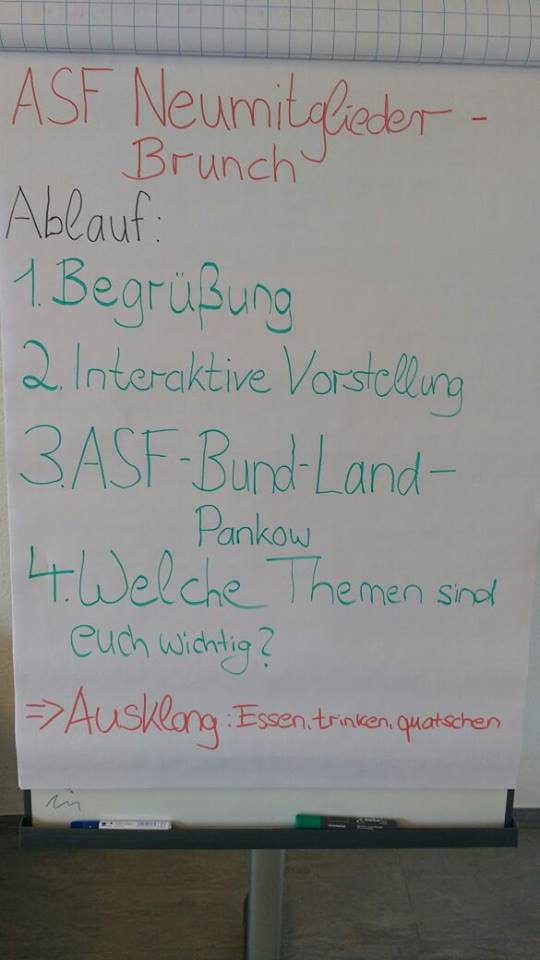 ASF Neumitglieder-
Brunch
Ablauf:
1. Begrüßung
2. Interaktive Vorstellung
3. ASF-Bund-Land-
Pankow
4. Welche Themen sind
euch wichtig?
=> Ausklang: Essen, trinken, quatschen